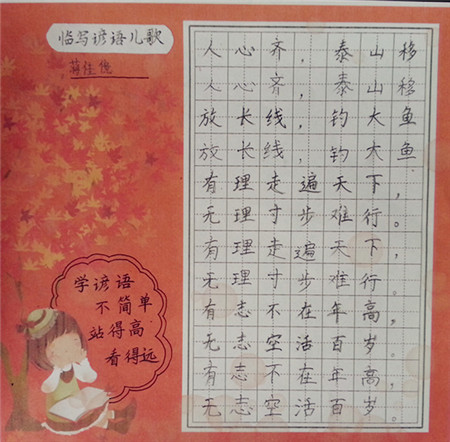 临写谚语儿歌
人心齐，泰山移
人心齐，泰山移
放长线，钓大鱼
放长线，钓大鱼
有理走遍天下，
无理寸步难行。
有理走遍天下，
无理寸步难行。
有志不在年高，
无志空活百岁。
有志不在年高，
无志空活百岁。
学谚语
不简单
站得高
看得远